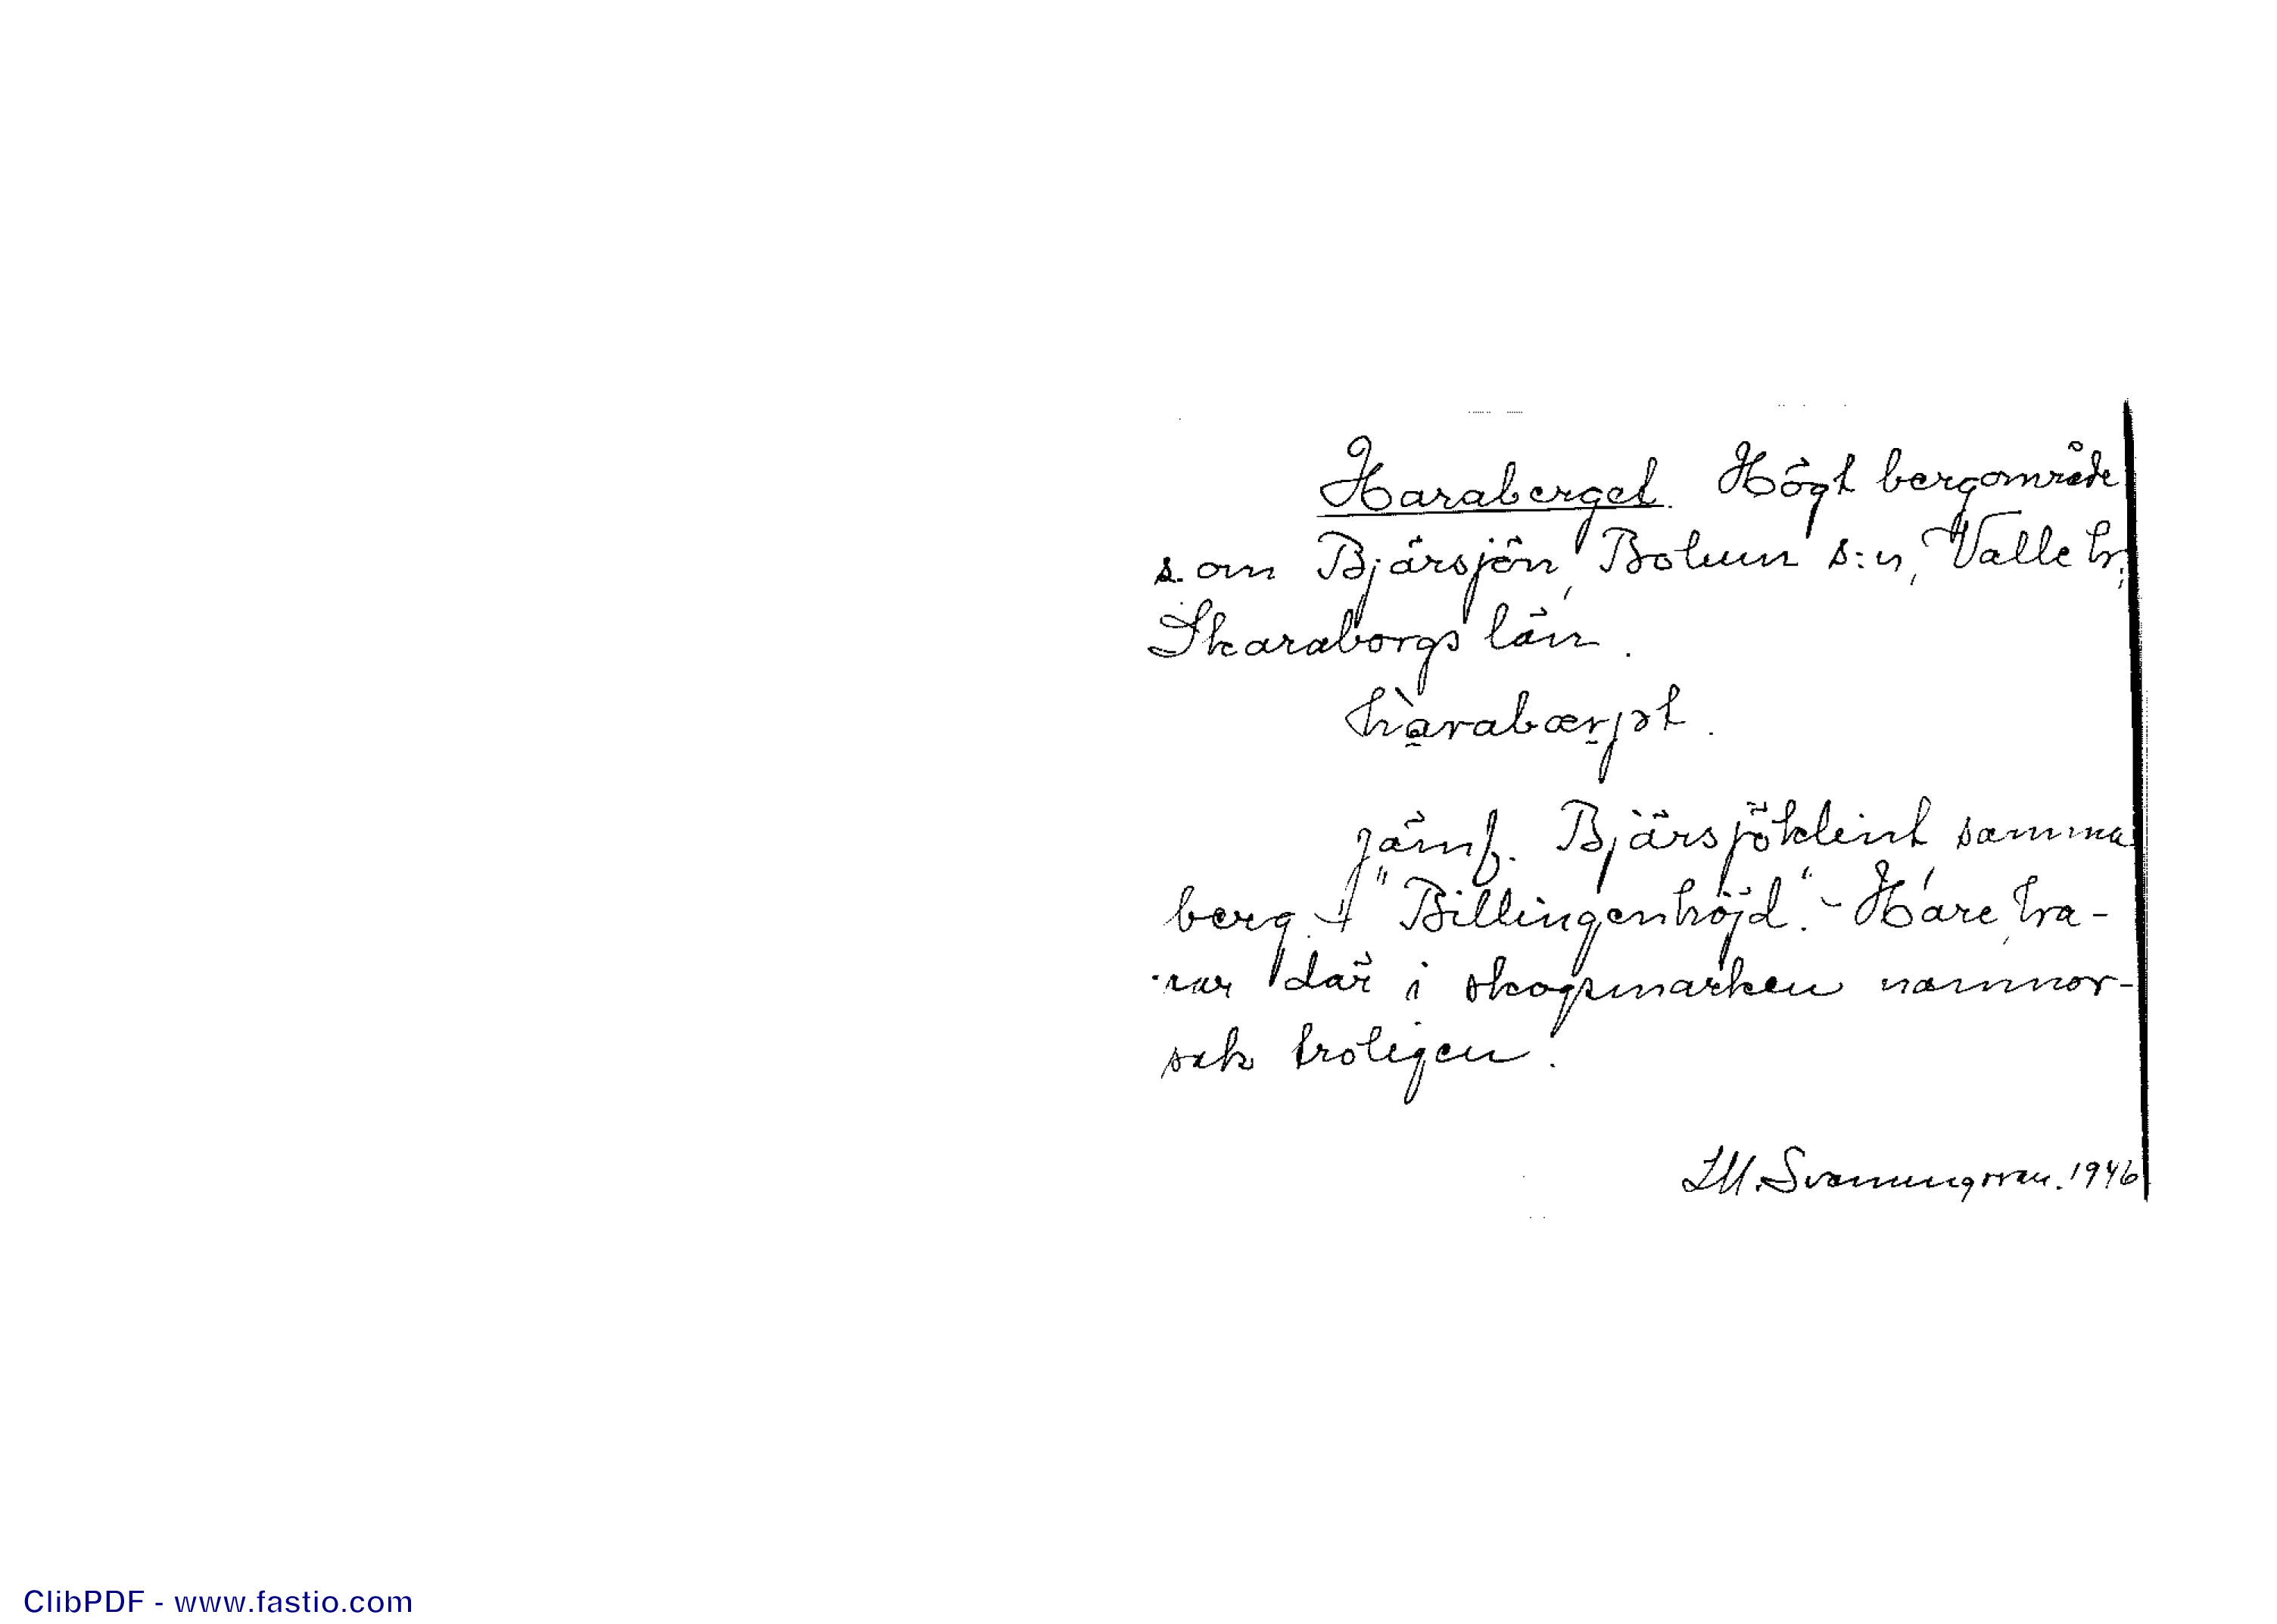 Haraberget. Högt bergområde
s. om Bjärsjön, Bolum s:n, Valle hr;
Skaraborgs län.
hàrabærjət.
Jämf. Bjärsjöklint samma
berg. "Billingenhöjd". - Hare, ha-
rar där i skogsmarken namnor-
sak troligen.
Svanungsson. 1946
ClibPDF - www.fastio.com